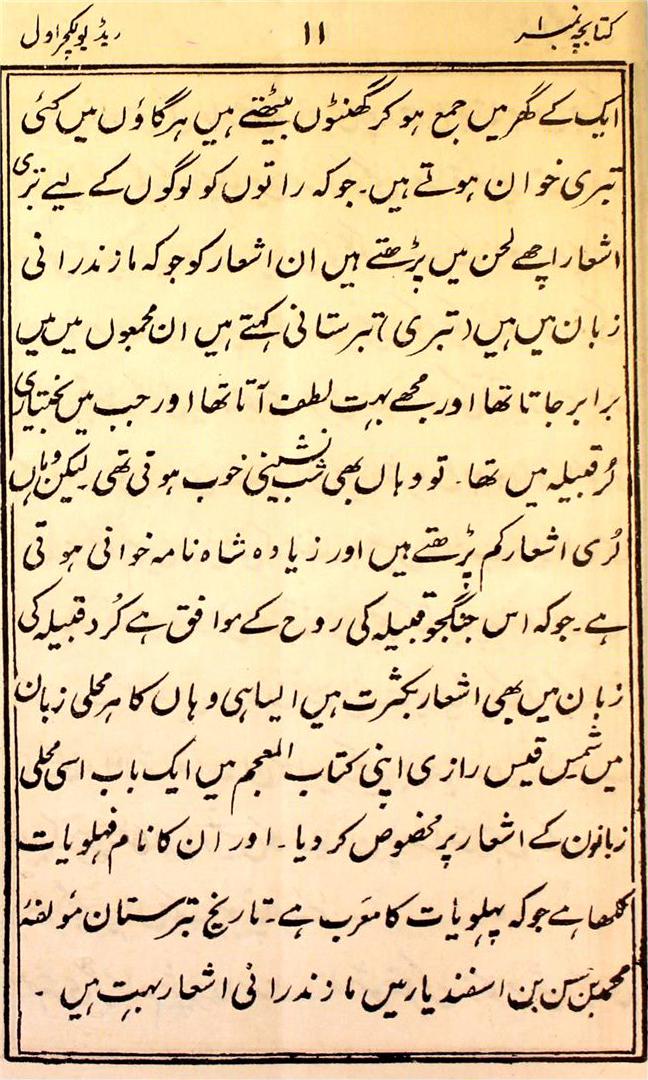 کتابچہ نمبر ۱
۱۱
ریڈیو لکچر اول
ایک کے گھر میں جمع ہو کر گھنٹوں بیٹھتے ہیں ہر گاؤں میں کئی
تبری خوان ہوتے ہیں۔ جو کہ راتوں کو لوگوں کے لیے تبری
اشعار اچھے لحن میں پڑھتے ہیں ان اشعار کو جو کہ مازندرانی
زبان میں ہیں (تبری) تبرستانی کہتے ہیں ان مجمعوں میں میں
برابر جاتا تھا اور مجھے بہت لطف آتا تھا اور جب میں بختیاری
لُر قبیلہ میں تھا۔ تو وہاں بھی شب نشینی خوب ہوتی تھی۔ لیکن وہاں
لُری اشعار کم پڑھتے ہیں اور زیادہ شاہ نامہ خوانی ہوتی
ہے۔ جو کہ اس جنگجو قبیلہ کی روح کے موافق ہے کُرد قبیلہ کی
زبان میں بھی اشعار بکثرت ہیں ایسا ہی وہاں کا ہر محلی زبان
میں شمس قیس رازی اپنی کتاب المعجم میں ایک باب اسی محلی
زبانون کے اشعار پر مخصوص کر دیا۔ اور ان کا نام فہلویات
لکھا ہے جو کہ پہلویات کا معَرب ہے۔ تاریخ تبرستان مؤلفۂ
محمد بن حسن بن اسفندیار میں مازندرانی اشعار بہت ہیں ۔